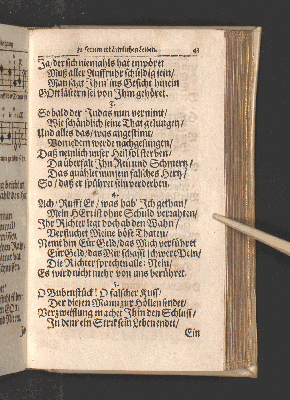 zu seinem unschätzbaren Leiden. 63
Ja/der sich niemahls hat empöret
Muß aller Auffruhr schuldig sein/
Man sagt Ihm ins Gesicht hinein
GOttslästern sei von Ihm gehöret.
3.
So bald der Judas nun vernimt/
Wie schändlich seine That gelungen/
Und alles das/was angestimt
Von iedem werde nachgesungen/
Daß nemlich unser Heil sol sterben/
Da überfält Ihn Reü und Schmertz/
Das quählet nun sein falsches Hertz/
So/daß er spühret sein verderben.
4.
Ach/Rufft Er/was hab' Ich gethan/
Mein HErr ist ohne Schuld verrahten/
Ihr Richter legt doch ab den Wahn/
Verfluchet Meine böse Thaten/
Nemt hin Eür Geld/das Mich verführet
Eür Geld/das Mir schafft schwere Pein/
Die Richter sprechen alle: Nein/
Es wird nicht mehr von uns berühret.
5.
O Bubenstück! O falscher Kuss/
Der diesen Mann zur Höllen sendet/
Verzweifflung machet Ihm den Schluß/
In dem ein Strick sein Leben endet/
Ein